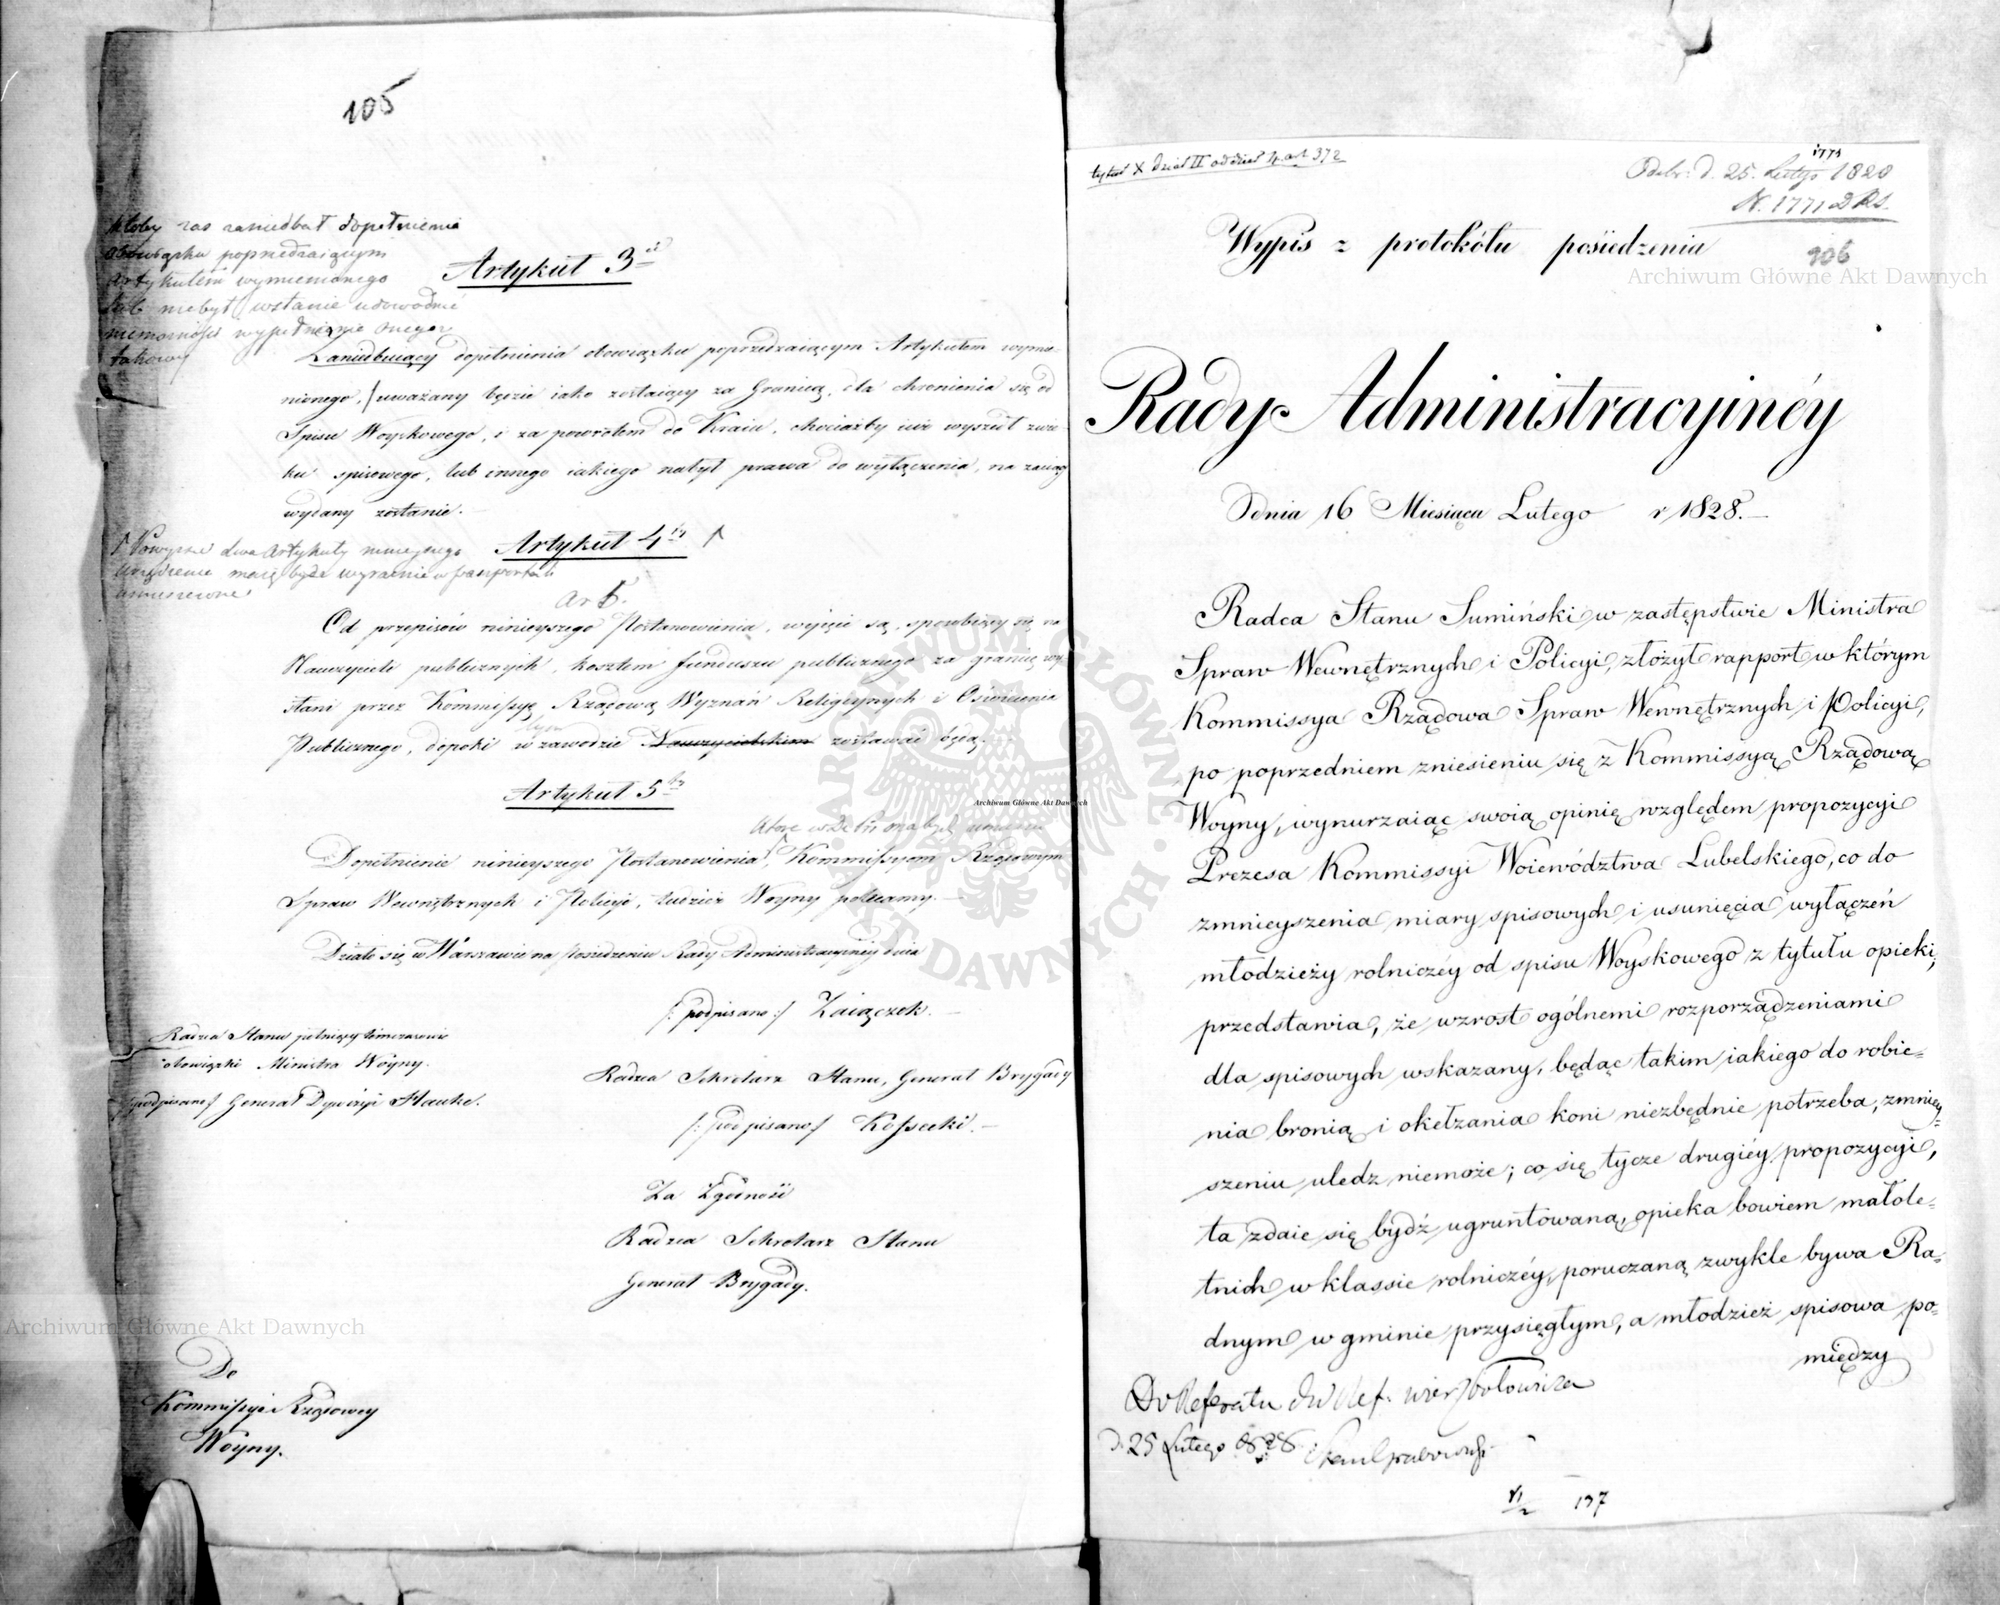 105
ktoby zas zaniedbał dopełnienia
obowiązku poprzedzaiącym
artykułem wymienionego
lub niebył wstanie udowodnić
niemożności wypełnienia onego
takowy
Artykuł 3ci
Zaniedbuiący dopełnienia obowiązku poprzedzaiącym Artykułem wymie-
nionego, uważany będzie iako zostaiący za Granicą, dla chronienia się od
Spisu Woyskowego, i za powrotem do Kraiu, chociażby iuż wyszedł z wie-
ku spisowego, lub innego iakiego nabył prawa do wyłączenia, na zaciąg
wydany zostanie.
Powyższe dwa Artykuły ninieyszego
urządzenia maią bydź wyraźnie w paszportach
umieszczone.
Artykuł 4ty
Art 5.
Od przepisów ninieyszego Postanowienia, wyięci są, sposobiący się na
Nauczycieli publicznych, kosztem funduszu publicznego za granicę wy-
słani przez Kommissyą Rządową Wyznań Religiynych i Oświecenia
Publicznego, dopóki w tym zawodzie Nauczycielskim zostawać będą.
Artykuł 5ty
Dopełnienie ninieyszego Postanowienia, Kommissyom Rządowym
Spraw Wewnętrznych i Policyi, tudzież Woyny polecamy.
Działo się w Warszawie na Posiedzeniu Rady Administracyiney dnia
/: podpisano :/ Zaiączek.
Radca Stanu pełniący tymczasowie
obowiązki Ministra Woyny.
/podpisano/ Generał Dywizyi Hauke.
Radca Sekretarz Stanu, Generał Brygady
/: podpisano/ Kossecki.
Za Zgodność
Radca Sekretarz Stanu
Generał Brygady.
Do
Kommissyi Rządowey
Woyny.
tytuł X dział II oddział 4 art 372
1771
Odebr. d. 25. Lutego 1828
N. 1771 DRS.
106
Wypis z protokółu posiedzenia
Rady Administracyinéy
Dnia 16 Miesiąca Lutego r 1828.
Radca Stanu Sumiński w zastępstwie Ministra
Spraw Wewnętrznych i Policyi, złożył rapport w którym
Kommissya Rządowa Spraw Wewnętrznych i Policyi,
po poprzedniem zniesieniu się z Kommissyą Rządową
Woyny, wynurzaiąc swoią opinię względem propozycyi
Prezesa Kommissyi Woiewództwa Lubelskiego, co do
zmnieyszenia miary spisowych i usunięcia wyłączeń
młodzieży rolniczéy od spisu Woyskowego z tytułu opieki,
przedstawia, że wzrost ogólnemi rozporządzeniami
dla spisowych wskazany, będąc takim iakiego do robie-
nia bronią i okełzania koni niezbędnie potrzeba, zmniey-
szeniu uledz niemoże; co się tycze drugiéy propozycyi,
ta zdaie się bydź ugruntowaną, opieka bowiem małole-
tnich w klassie rolniczéy, poruczaną zwykle bywa Ra-
dnym w gminie przysięgłym, a młodzież spisowa po-
między
Do Referatu
d. 25 Lutego 1828
VI/2 137
Archiwum Główne Akt Dawnych
Archiwum Główne Akt Dawnych
Archiwum Główne Akt Dawnych
ARCHIWUM GŁÓWNE AKT DAWNYCH